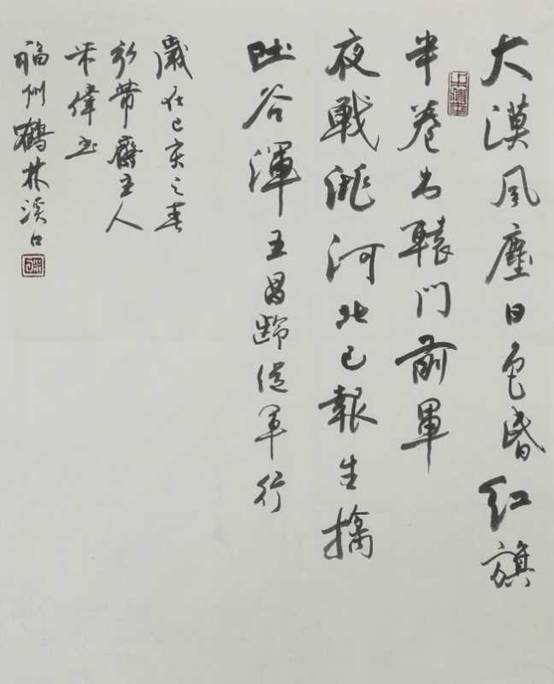 大漠風塵日色昏红旗
半卷出轅門前軍
夜戰洮河北已報生擒
吐谷渾王昌齡從軍行
歲在己亥之春
齋主人
偉書
福州鶴林溪口